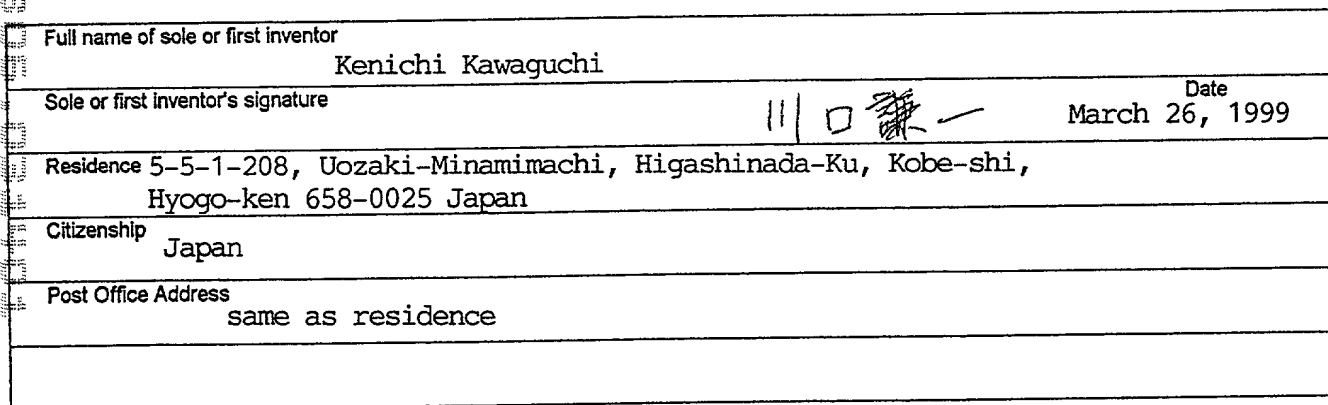 Full name of sole or first inventor
Kenichi Kawaguchi
Sole or first inventor's signature
川口謙一
Date
March 26, 1999
Residence 5-5-1-208, Uozaki-Minamimachi, Higashinada-Ku, Kobe-shi,
Hyogo-ken 658-0025 Japan
Citizenship
Japan
Post Office Address
same as residence